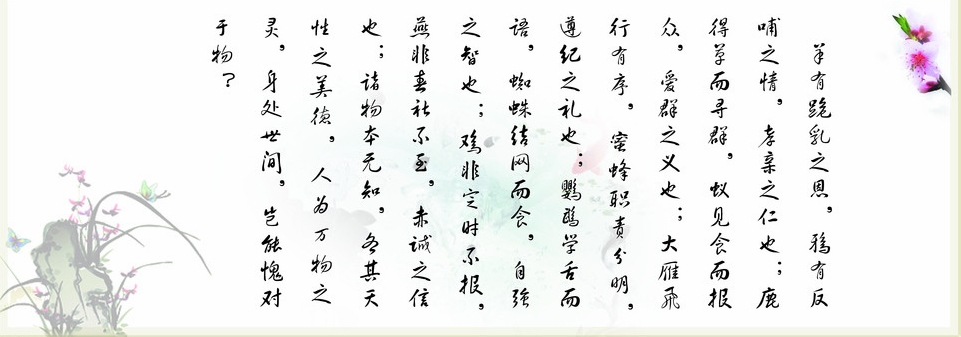 羊有跪乳之恩，鸦有反
哺之情，孝亲之仁也；鹿
得草而寻群，蚁见食而报
众，爱群之义也；大雁飞
行有序，蜜蜂职责分明，
遵纪之礼也；鹦鹉学舌而
语，蜘蛛结网而食，自强
之智也；鸡非定时不报，
燕非春社不至，赤诚之信
也；诸物本无知，各具天
性之美德，人为万物之
灵，身处世间，岂能愧对
于物？